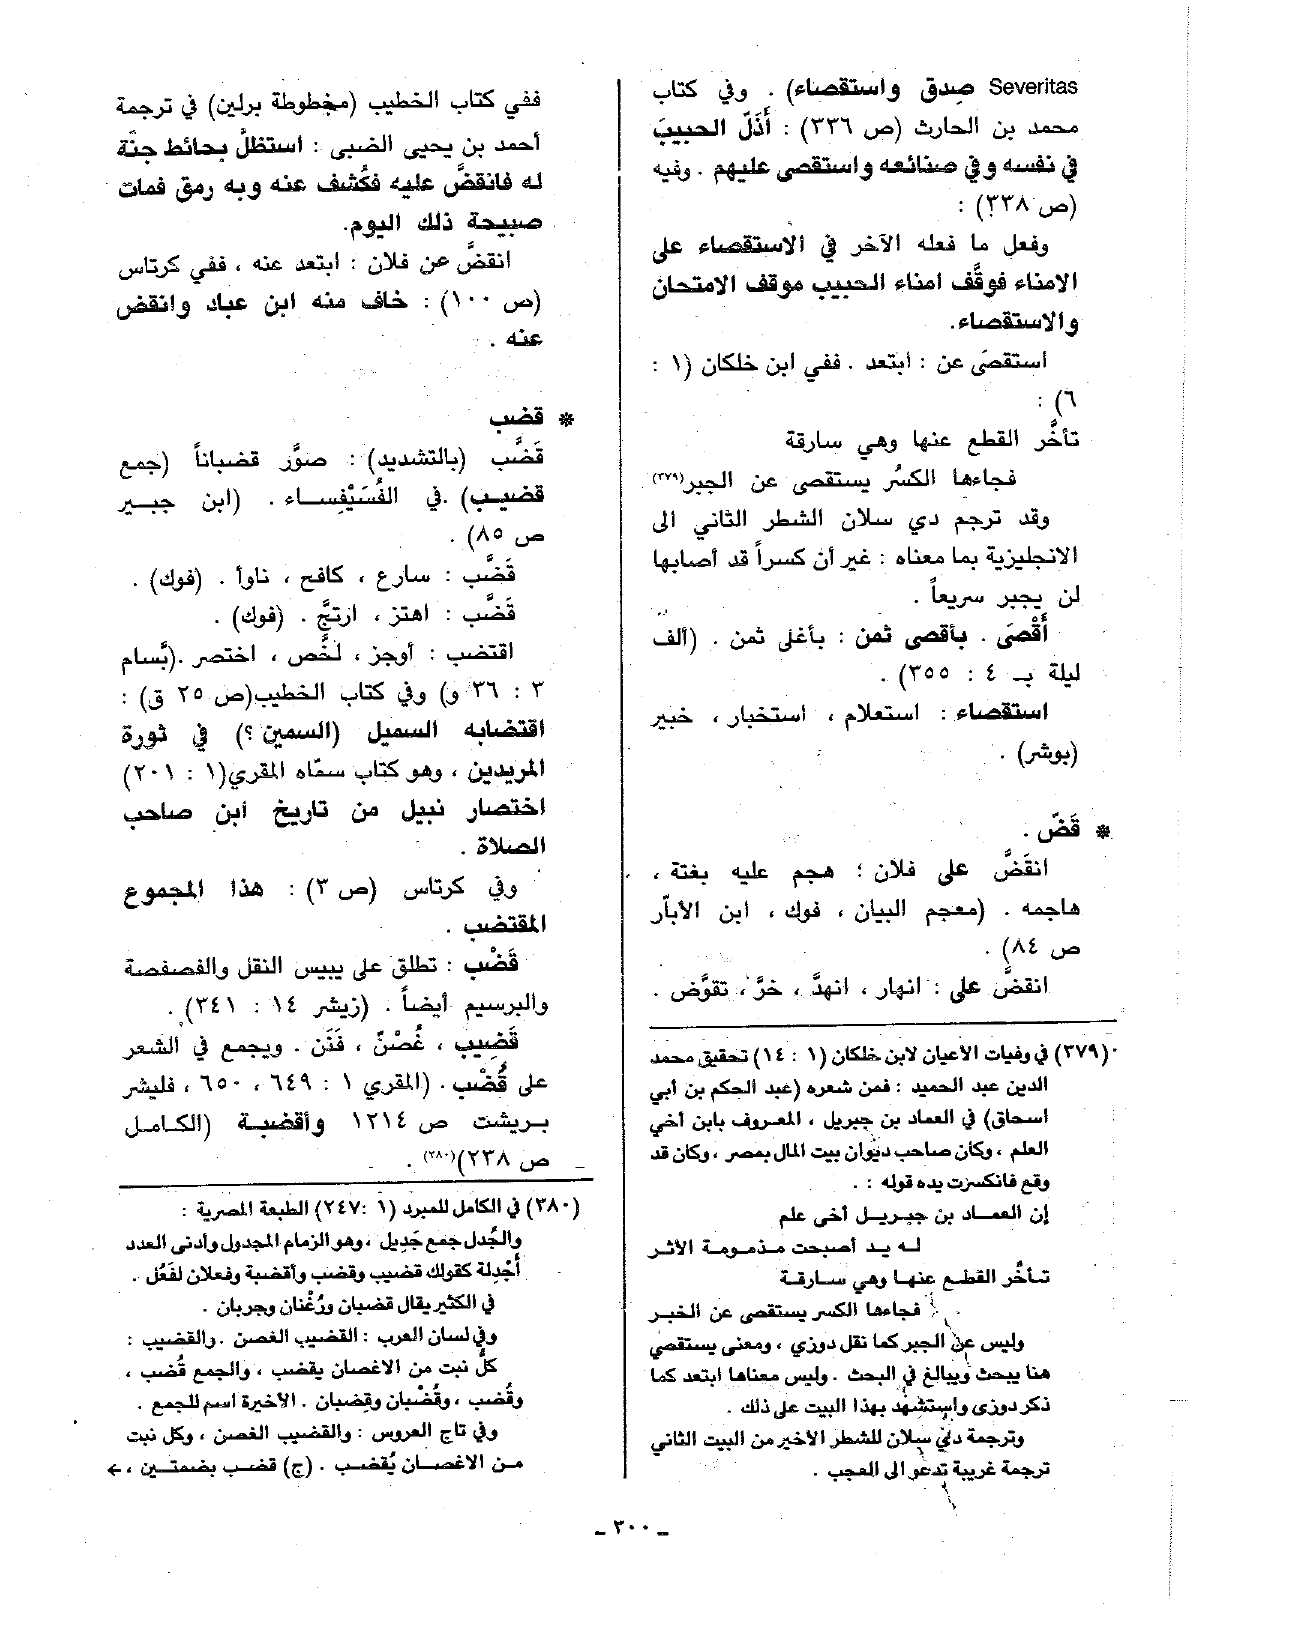 Severitas صدق واستقصاء) . وفي كتاب
محمد بن الحارث (ص ٣٣٦) : أَذَلّ الحبيبَ
في نفسه وفي صنائعه واستقصى عليهم . وفيه
(ص ٣٣٨) :
وفعل ما فعله الآخر في الاستقصاء على
الامناء فوقَّف امناء الحبيب موقف الامتحان
والاستقصاء.
استقصَى عن : ابتعد . ففي ابن خلكان (١ :
٦) :
تأخَّر القطع عنها وهي سارقة
فجاءها الكسرُ يستقصى عن الجبر(٣٧٩)
وقد ترجم دي سلان الشطر الثاني الى
الانجليزية بما معناه : غير أن كسراً قد أصابها
لن يجبر سريعاً .
أَقْصَى . بأقصى ثمن : بأغلى ثمن . (ألف
ليلة بـ ٤ : ٣٥٥) .
استقصاء : استعلام ، استخبار ، خبير
(بوشر) .
* قَضّ .
انقَضَّ على فلان ؛ هجم عليه بغتة ،
هاجمه . (معجم البيان ، فوك ، ابن الأبّار
ص ٨٤) .
انقضَّ على : انهار ، انهدَّ ، خرَّ ، تقوَّض .
(٣٧٩) في وفيات الاعيان لابن خلكان (١ : ١٤) تحقيق محمد
الدين عبد الحميد : فمن شعره (عبد الحكم بن أبي
اسحاق) في العماد بن جبريل ، المعروف بابن أخي
العلم ، وكان صاحب ديوان بيت المال بمصر ، وكان قد
وقع فانكسرت يده قوله : .
إن العمـاد بن جبـريـل أخى علم
لـه يـد أصبحت مـذمـومـة الاثـر
تـأخَّر القطـع عنهـا وهي سـارقـة
فجاءها الكسر يستقصى عن الخبـر
وليس عن الجبر كما نقل دوزي ، ومعنى يستقصي
هنا يبحث ويبالغ في البحث . وليس معناها ابتعد كما
ذكر دوزى واستشهد بهذا البيت على ذلك .
وترجمة دي سلان للشطر الاخير من البيت الثاني
ترجمة غريبة تدعو الى العجب .
ففي كتاب الخطيب (مخطوطة برلين) في ترجمة
أحمد بن يحيى الضبى : استظلَّ بحائط جنّة
له فانقضَّ عليه فكُشف عنه وبه رمق فمات
صبيحة ذلك اليوم.
انقضَّ عن فلان : ابتعد عنه ، ففي كرتاس
(ص ١٠٠) : خاف منه ابن عباد وانقض
عنه .
* قضب
قَضَّب (بالتشديد) : صوَّر قضباناً (جمع
قضيـب) .في الفُسَيْفِسـاء . (ابن جبـير
ص ٨٥) .
قَضَّب : سارع ، كافح ، ناوأ . (فوك) .
قَضَّب : اهتز ، ارتجَّ . (فوك) .
اقتضب : أوجز ، لخَّص ، اختصر .(بَّسام
٣ : ٣٦ و) وفي كتاب الخطيب(ص ٢٥ ق) :
اقتضابه السميل (السمين ؟) في ثورة
المريدين ، وهو كتاب سمّاه المقري(١ : ٢٠١)
اختصار نبيل من تاريخ ابن صاحب
الصلاة .
وفي كرتاس (ص ٣) : هذا المجموع
المقتضب .
قَضْب : تطلق على يبيس النقل والفصفصة
والبرسيم أيضاً . (زيشر ١٤ : ٣٤١) .
قَضِيب ، غُصْنٌ ، فَنَن . ويجمع في الشعر
على قُضْب . (المقري ١ : ٦٤٩ ، ٦٥٠ ، فليشر
بـريشت ص ١٢١٤ وأقضبـة (الكـامـل
ص ٢٣٨)(٣٨٠) .
(٣٨٠) في الكامل للمبرد (١ :٢٤٧) الطبعة المصرية :
والجُدل جمع جَدِيل ، وهو الزمام المجدول وأدنى العدد
أَجْدِلة كقولك قضيب وقضب وأقضبة وفعلان لفَعُل .
في الكثير يقال قضبان ورُغْنان وجربان .
وفي لسان العرب : القضيب الغصن . والقضيب :
كلُّ نبت من الاغصان يقضب ، والجمع قُضب ،
وقُضب ، وقُضْبان وقِضبان . الأخيرة اسم للجمع .
وفي تاج العروس : والقضيب الغصن ، وكل نبت
مـن الاغصـان يُقضـب . (ج) قضـب بضمتـين ، ←
ـ ٣٠٠ ـ